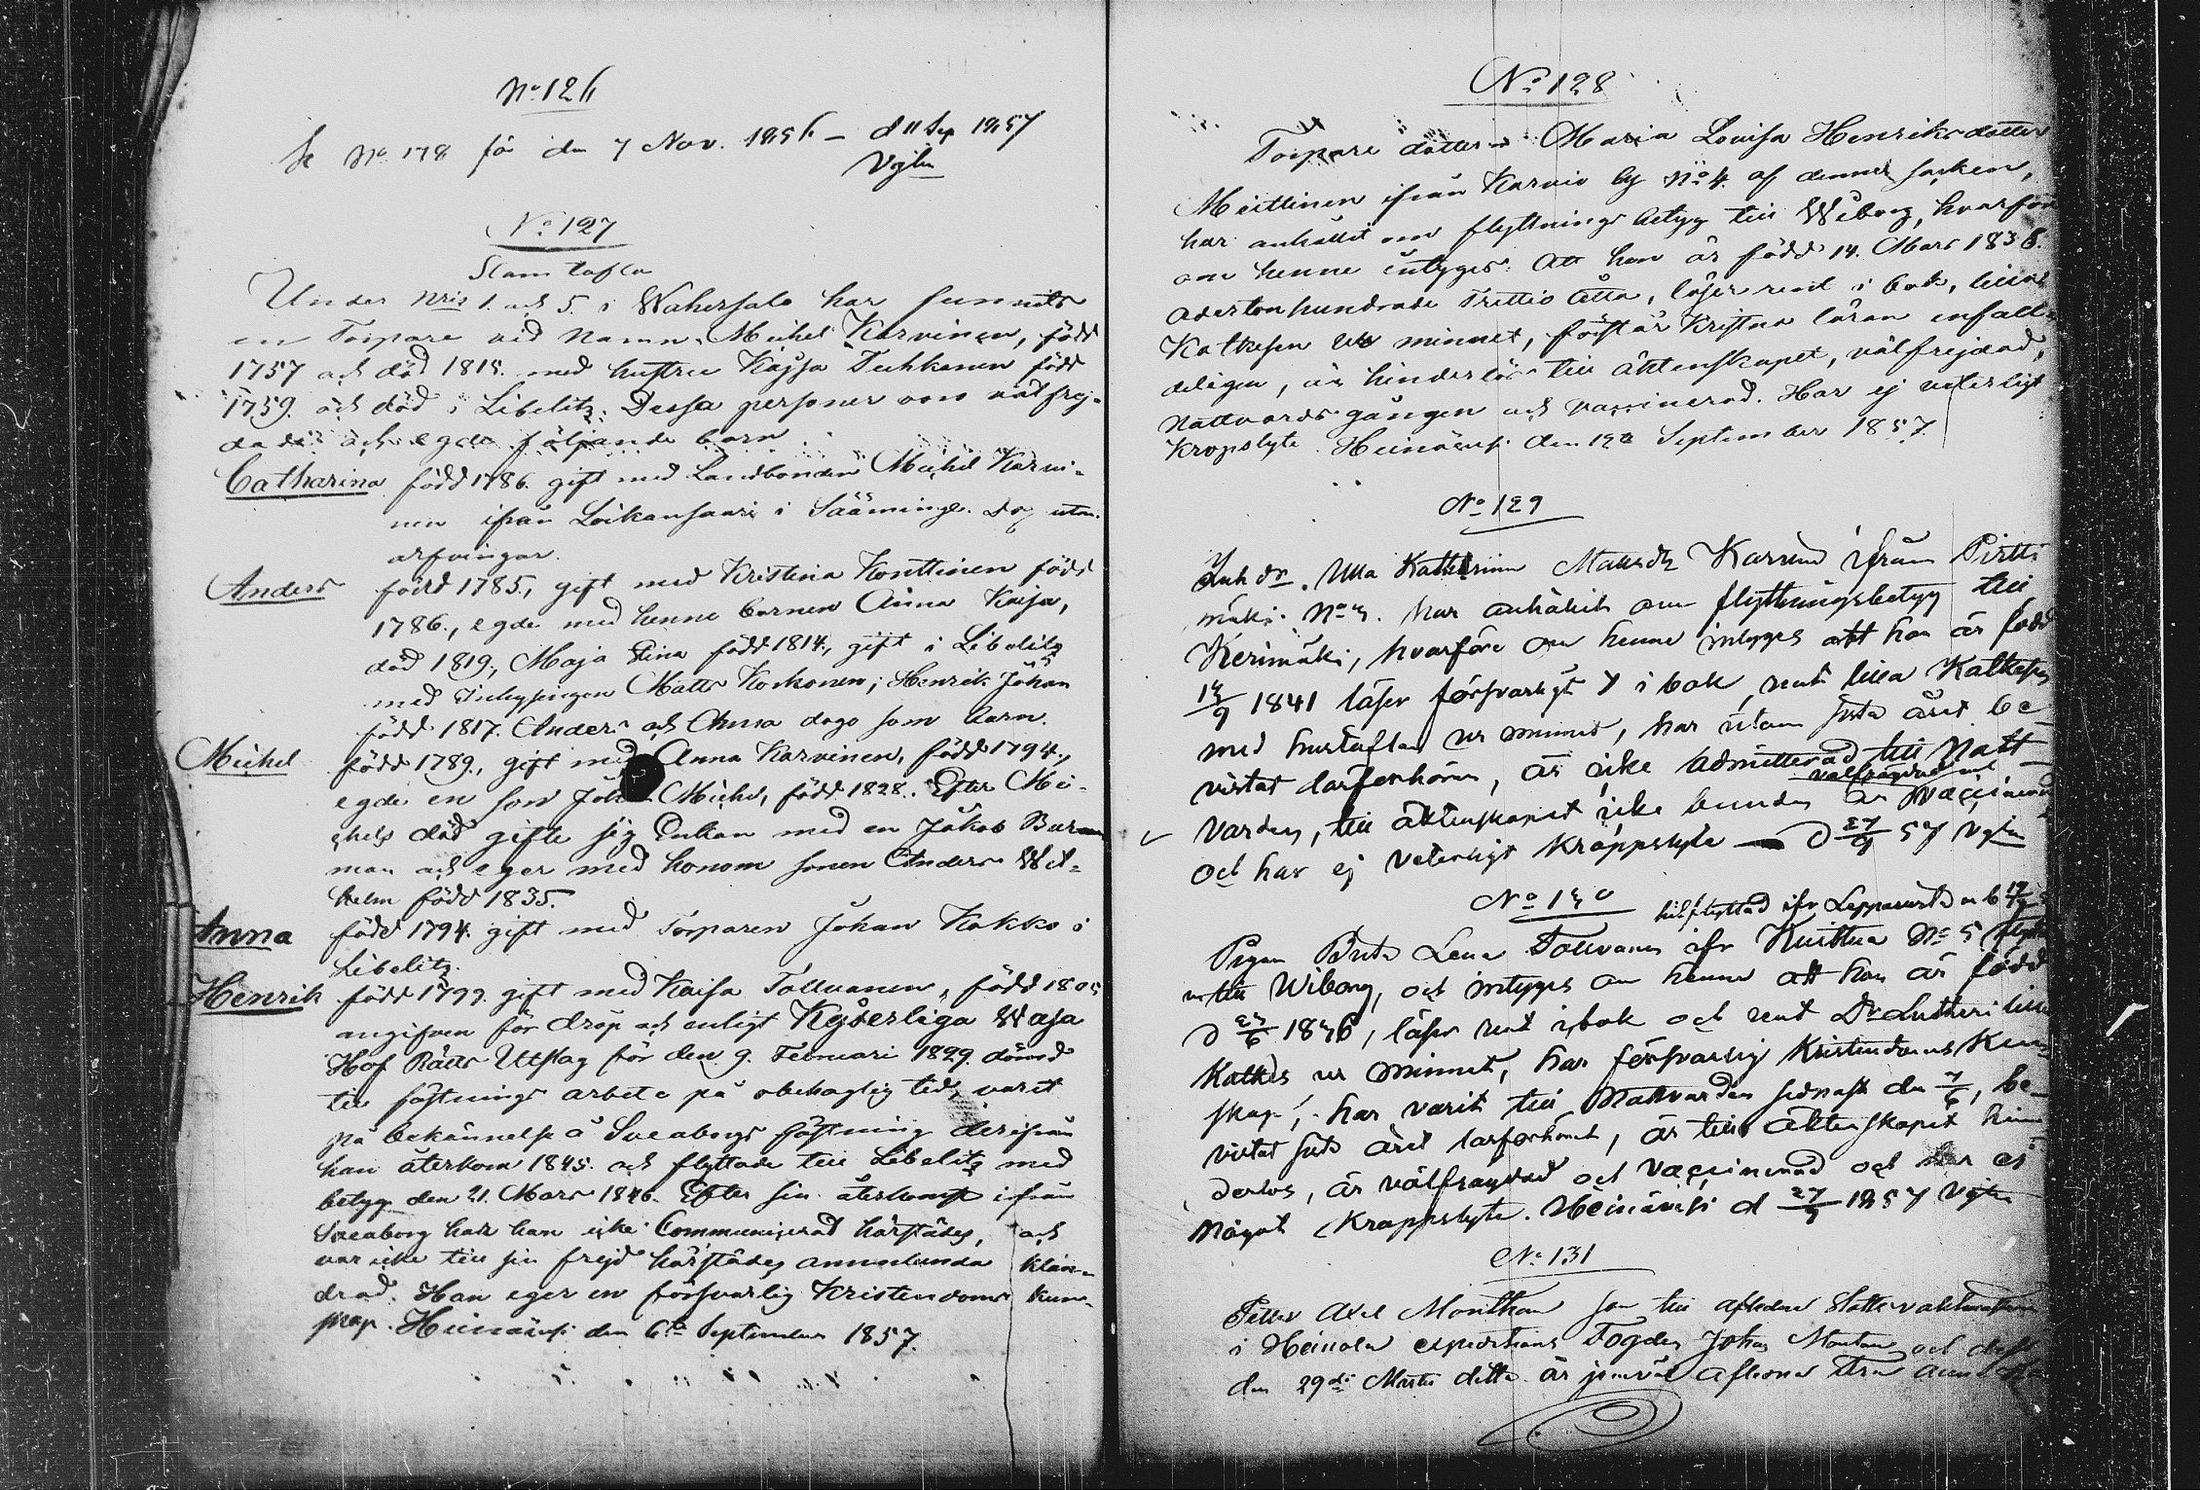 No 126
Se No 178 för den 7 Nov. 1856 – d 11 Sep 1857
Vgln
No 127
Stam tafla
Under Nris 1. och 5. i Wahersalo har funnits
en Torpare vid namn Michel Karvinen, född
1757 och död 1815. med hustru Kajsa Tuhkanen född
1759. och död i Libelitz. Dessa personer voro välfrej-
dade och egde följande barn.
Catharina född 1786. gift med Landbonden Michel Karvi-
nen ifrån Loikansaari i Sääminge. Dog utan
arfvingar.
Anders född 1785., gift med Kristina Konttinen född
1786., egde med henne barnen Anna Kajsa,
död 1819., Maja Stina född 1814., gift i Libelitz
med Inhysingen Matts Korhonen; Henrik Johan
född 1817. Anders och Anna dogo som barn.
Michel född 1789., gift med Anna Karvinen, född 1794.,
egde en son Johan Michel, född 1828. Efter Mi-
chels död gifte sig Enkan med en Jakob Bur
man och eger med honom sonen Anders Wil-
helm född 1835.
Anna född 1794. gift med Torparen Johan Kokko i
Libelitz.
Henrik född 1799. gift med Kaisa Tolvanen, född 180
angifven för dråp och enligt Kejserliga Wasa
Hof Rätts Utslag för den 9. Februari 1829. dömd
till fästnings arbete på obehaglig tid, varit
på bekännelse å Sveaborgs fästning derifrån
han återkom 1845. och flyttade till Libelitz med
betyg den 21. Mars 1846. Efter sin återkomst ifrån
Sveaborg hade han icke Communicerad härstädes, och
var icke till sin frejd härstädes annorlunda klan-
drad. Han eger en försvarlig Kristendoms kun-
skap. Heinävesi den 6te September 1857.
No 128
Torpare dottren Maria Lovisa Henriksdotter
Miettinen ifrån Karvio by No 4. af denna socken,
har anhållit om flyttnings betyg till Wiborg, hvarföre
om henne intyges: Att hon är född 14. Mars 1838.
adertonhundrade Trettio åtta, läser rent i bok, lilla
Katkesen ur minnet, förstår Kristna läran enfall-
deligen, är hinderlös till äktenskapet, välfrejdad,
Nattvards gången och vaccinerad. Har ej veterligt
Kropslyte. Heinävesi den 12te September 1857.
No 129
Inh dr. Ulla Kathrina Matsdr Karvinen ifrån Pirtti
mäki No 3. har anhållit om flyttningsbetyg till
Kerimäki, hvarföre om henne intyges att hon är född
1841 läser försvarligt i bok, rent lilla Katkesen
med hustaflan ur minnet, har utom sista året be-
vistat läsförhören, är icke admitterad till Natt-
varden, till äktenskapet icke bunden är välfrejdad och vaccinerad
och har ej veterligt kroppslyte – d 27/9 57 Vgln
No 130
hitflyttad ifr Leppävirta
Pigan Brita Lena Tolvanen ifr Kuittua No 5 flytt
till Wiborg, och intyges om henne att hon är född
d 1836, läser rent i bok och rent Dr Lutheri lilla
Katkes ur minnet, har försvarlig Kristendoms Kun-
skap, har varit till Nattvarden sednast den , be-
vistat sista året läsförhöret, är till äktenskapet hin-
derlös, är välfrejdad och vaccinerad och har ej
något Kroppslyte. Heinävesi d 27/9 1857 Vgln
No 131
Petter Axel Monthan son till afledne
i Heinola expeditions Fogden Johan Montan och
den 29de Martii ditto är jemväl